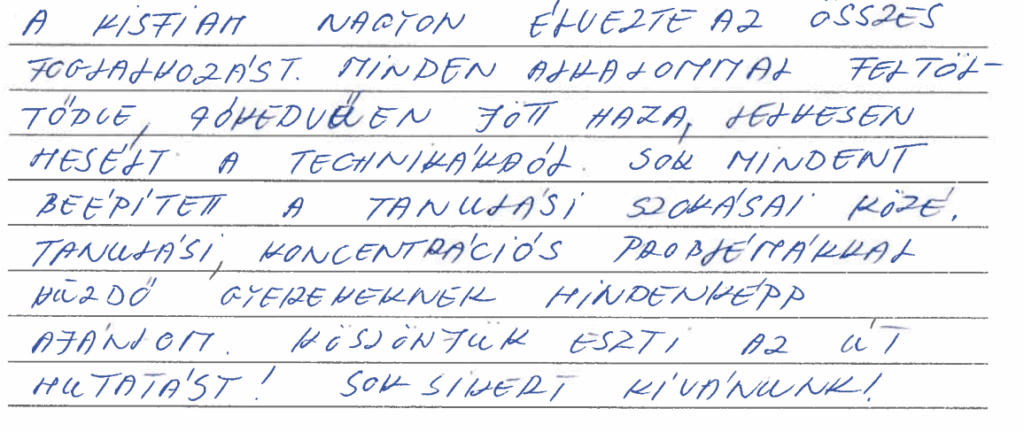 A KISFIAM NAGYON ÉLVEZTE AZ ÖSSZES
FOGLALKOZÁST. MINDEN ALKALOMMAL FELTÖL-
TŐDVE, JÓKEDVŰEN JÖTT HAZA, LELKESEN
MESÉLT A TECHNIKÁKRÓL. SOK MINDENT
BEÉPÍTETT A TANULÁSI SZOKÁSAI KÖZÉ.
TANULÁSI, KONCENTRÁCIÓS PROBLÉMÁKKAL
KÜZDŐ GYEREKEKNEK MINDENKÉPP
AJÁNLOM. KÖSZÖNJÜK ESZTI AZ ÚT
MUTATÁST! SOK SIKERT KÍVÁNUNK!